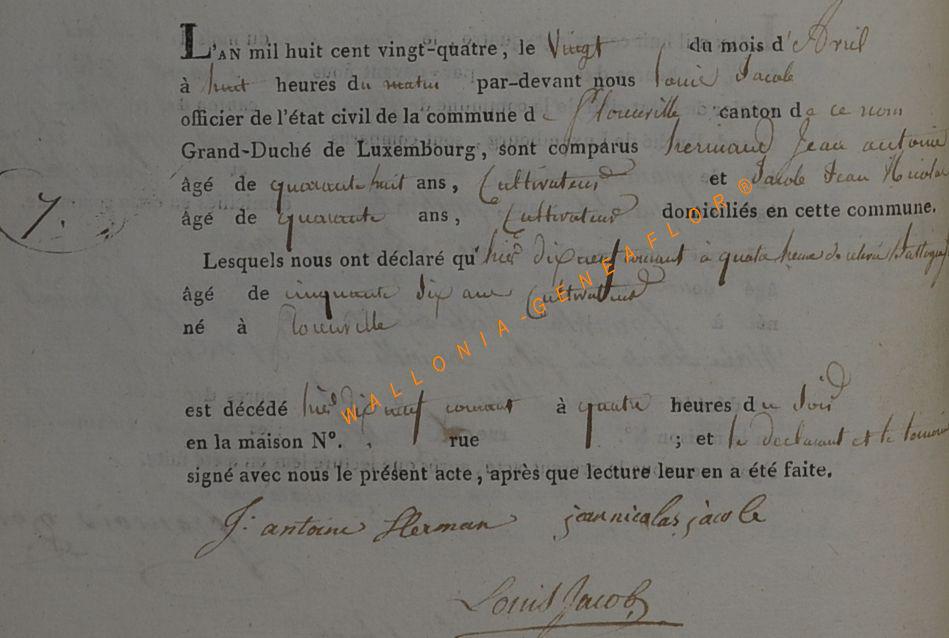 L'AN mil huit cent vingt-quatre, le Vingt du mois d'Avril
à huit heures du matin par-devant nous louis Jacob
officier de l'état civil de la commune de canton de ce nom
Grand-Duché de Luxembourg, sont comparus hermand Jean antoine
âgé de quarante huit ans, Cultivateur et Jacob Jean Nicolas
7.
âgé de quarante ans, Cultivateur domiciliés en cette commune.
Lesquels nous ont déclaré qu'hier dix neuf courant à quatre heure
âgé de cinquante dix ans Cultivateur
né à
est décédé hier dix neuf courant à quatre heures du soir
en la maison N°. , rue ; et le declarant et le temoin
signé avec nous le présent acte, après que lecture leur en a été faite.
J: antoine Herman jean nicolas jacob
Louis Jacob
WALLONIA-GENEAFLOR®